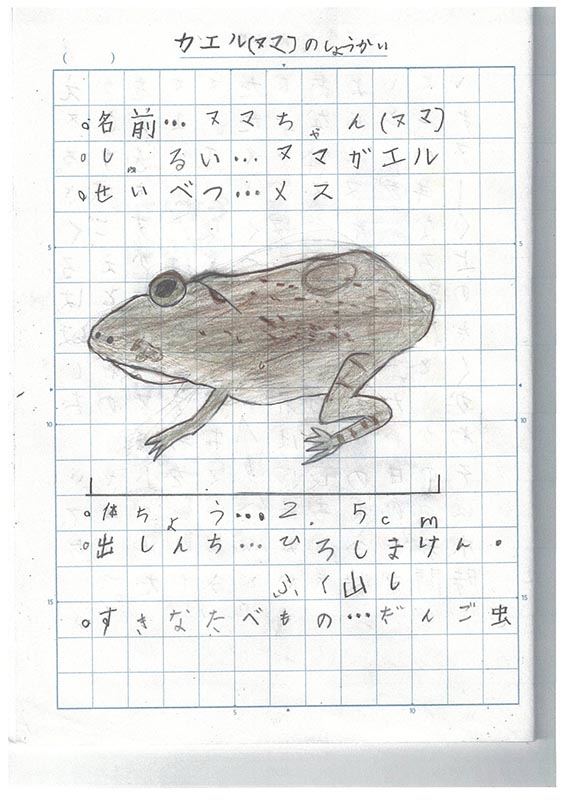 カエル(ヌマ)のしょうかい
(　　)
。名前…ヌマちゃん(ヌマ)
。しゅるい…ヌマガエル
。せいべつ…メス
5
5
10
10
。体ちょう…2.5cm
。出しんち…ひろしまけん・
ふく山し
。すきなたべもの…だんご虫
15
15
5
10